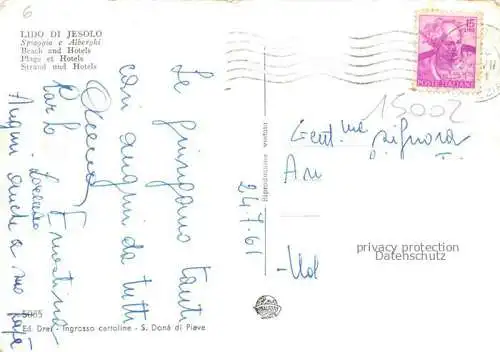 6
LIDO DI JESOLO
Spiaggia e Alberghi
Beach and Hotels
Plage et Hotels
Strand und Hotels
15
LIRE
POSTE ITALIANE
15002
Le giungano tanti
cari auguri da tutti
Ernestina
Carlo
Loredana
Auguri anche a suo papà
24.7.61
Riproduzione vietata
Gent.ma Signora
Ud
privacy protection
Datenschutz
5065
Ed. Drei - Ingrosso cartoline - S. Donà di Piave